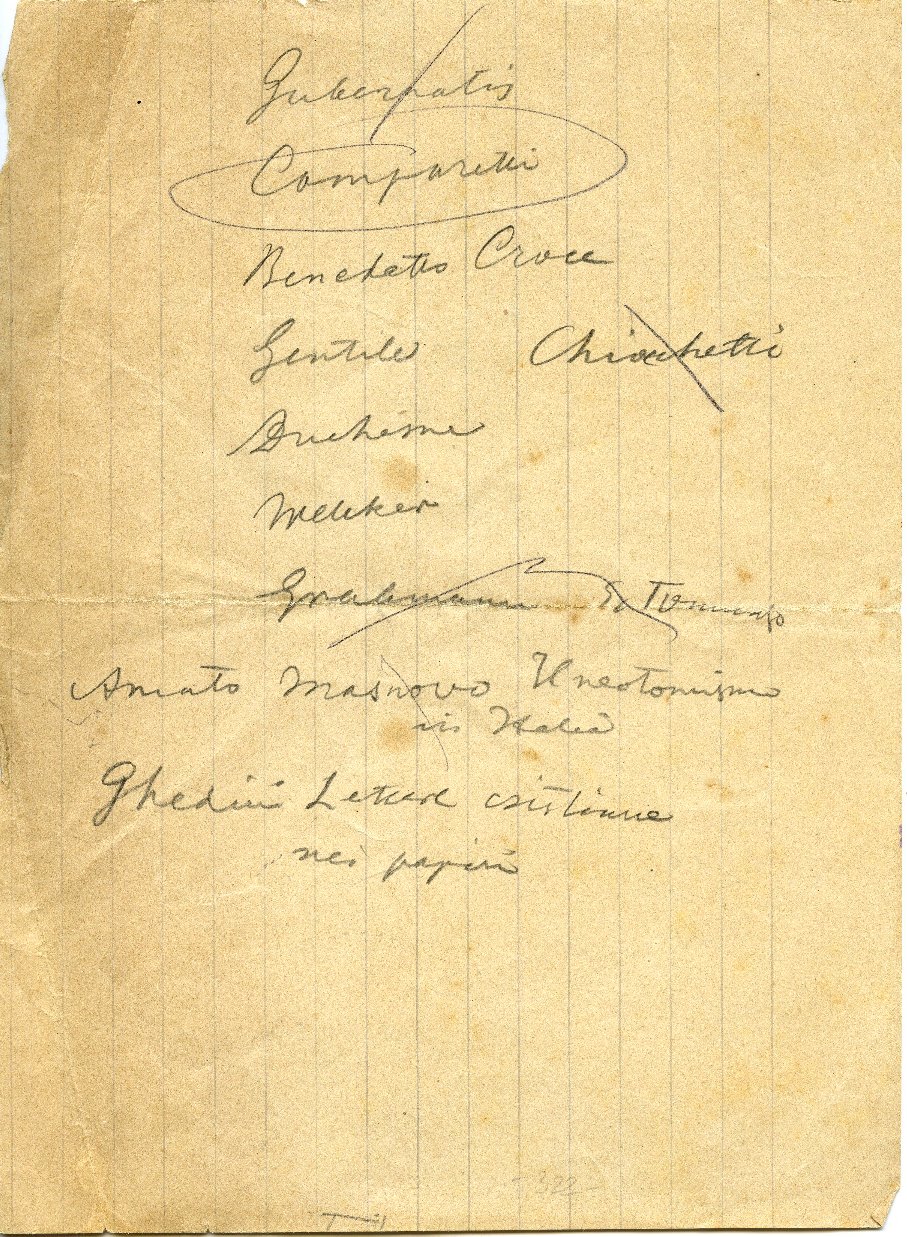 Gubernatis
Comparetti
Benedetto Croce
Gentile Chiocchetti
Duchesne
Grabmann S. Tommaso
Amato Masnovo Il neotomismo
in Italia
Ghedini Lettere cristiane
nei papiri
322